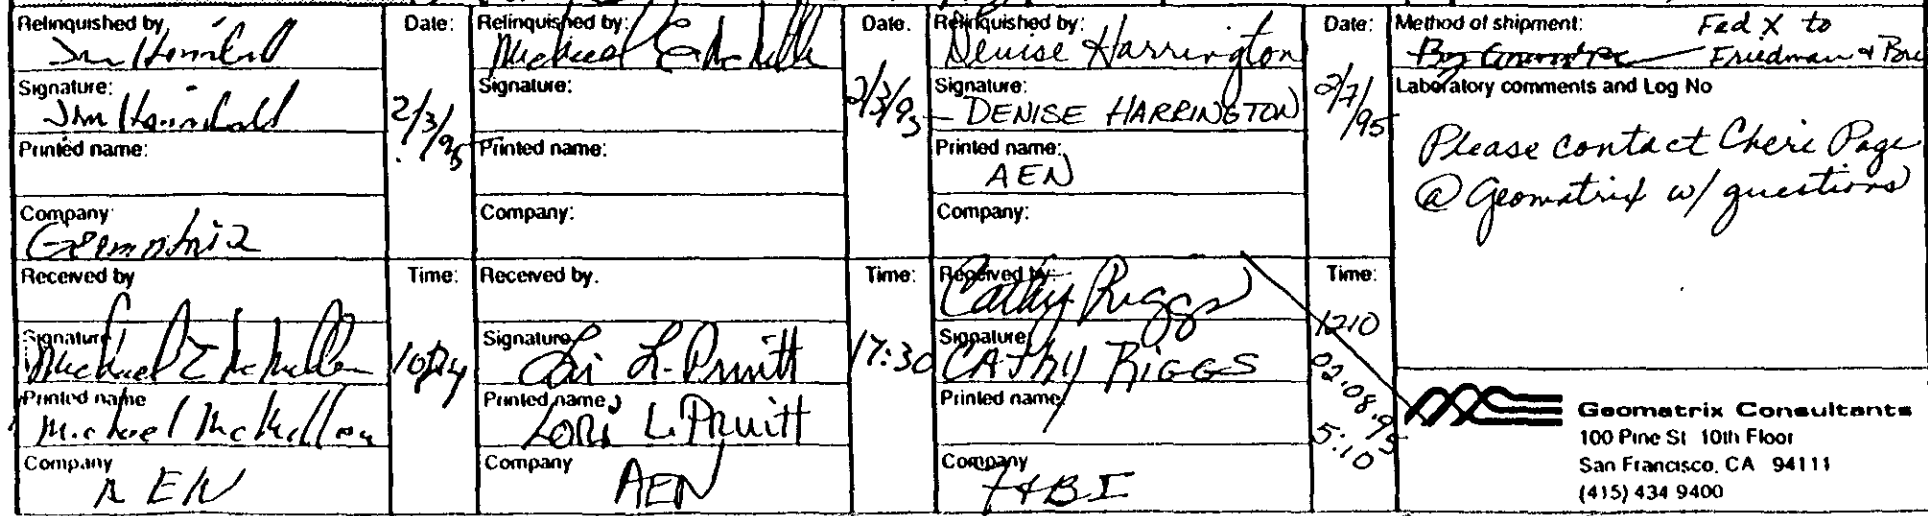 Relinquished by
Signature:
Printed name:
Company:
Geomatrix
Date:
2/3/95
Received by
Signature
Michael E McMullen
Printed name
Michael McMullen
Company
AEN
Time:
Relinquished by:
Michael E McMullen
Signature:
Printed name:
Company:
Date.
2/3/95
Received by.
Signature
Lori L. Pruitt
Printed name
LORi L. Pruitt
Company
AEN
Time:
17:30
Relinquished by:
Denise Harrington
Signature:
DENISE HARRINGTON
Printed name:
AEN
Company:
Date:
2/7/95
Received by:
Cathy Riggs
Signature
CATHY RIGGS
Printed name
Company
F&BI
Time:
1210
02.08.95
5:10
Method of shipment:
Fed X to
Friedman & Bru
Laboratory comments and Log No
Please contact Cheri Page
@ Geomatrix w/ questions
Geomatrix Consultants
100 Pine St 10th Floor
San Francisco, CA 94111
(415) 434 9400